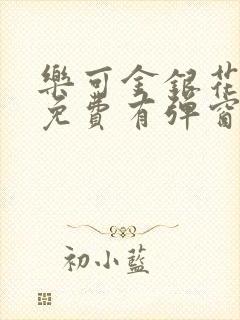 樂可金銀花
免費有彈窗
初小藍